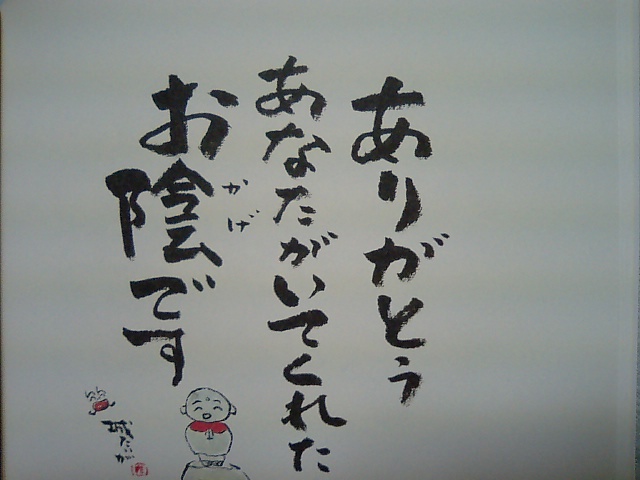 ありがとう
あなたがいてくれた
お陰です
かげ